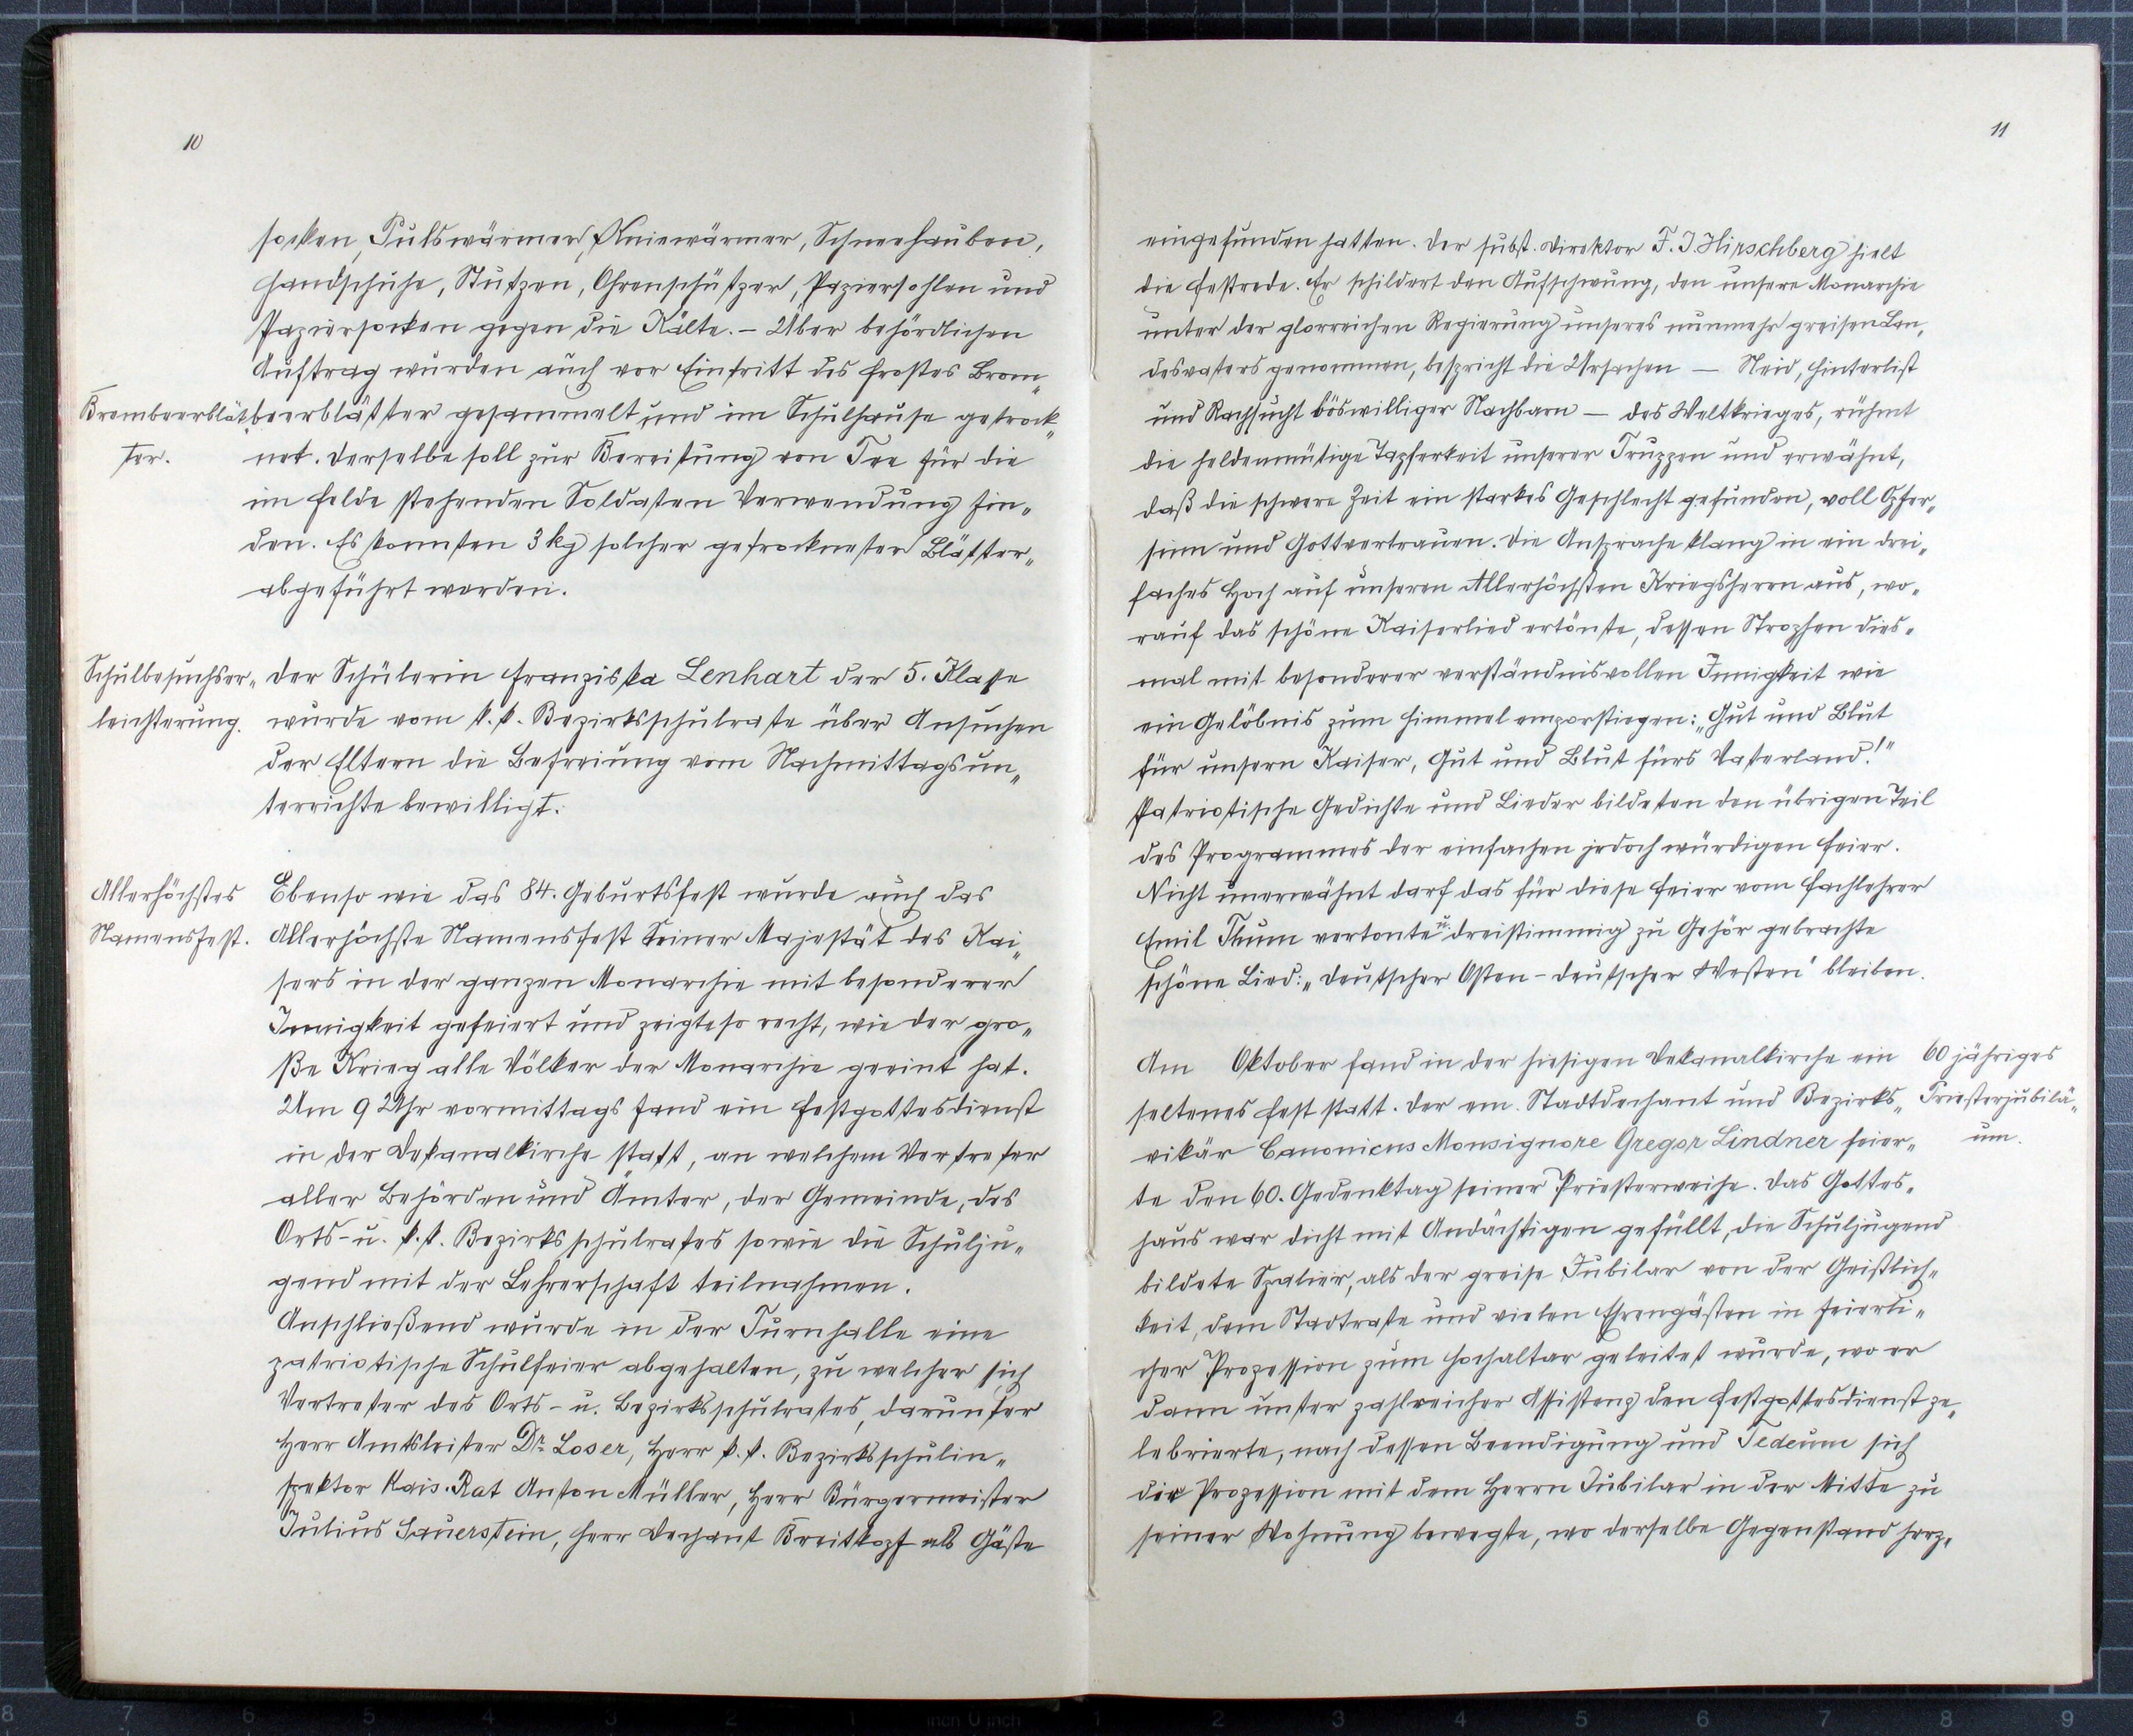 10
socken, Pulswärmer, Kniewärmer, Schneehauben,
Handschuhe, Stutzen, Ohrenschützer, Papiersohlen und
Papiersocken gegen die Kälte. – Über behördlichen
Auftrag wurden auch vor Eintritt des Frostes Brom„
Brombeerblät„
ter.
beerblätter gesammelt und im Schulhause getrock„
net. Derselbe soll zur Bereitung von Tee für die
im Felde stehenden Soldaten Verwendung fin„
den. Es konnten 3 kg solcher getrockneter Blätter„
abgeführt werden.
Schulbesuchser„
leichterung.
Der Schülerin Franziska Lenhart der 5. Klasse
wurde vom k. k. Bezirksschulrate über Ansuchen
der Eltern die Befreiung vom Nachmittagsun„
terrichte bewilligt.
Allerhöchstes
Namensfest.
Ebenso wie das 84. Geburtsfest wurde auch das
Allerhöchste Namensfest Seiner Majestät des Kai„
sers in der ganzen Monarchie mit besonderer
Innigkeit gefeiert und zeigte so recht, wie der gro„
ße Krieg alle Völker der Monarchie geeint hat.
Um 9 Uhr vormittags fand ein Festgottesdienst
in der Dekanalkirche statt, an welchem Vertreter
aller Behörden und Ämter, der Gemeinde, des
Orts- u. k. k. Bezirksschulrates sowie die Schulju„
gend mit der Lehrerschaft teilnahmen.
Anschließend wurde in der Turnhalle eine
patriotische Schulfeier abgehalten, zu welcher sich
Vertreter des Orts- u. Bezirksschulrates, darunter
Herr Amtsleiter Dr. Loser, Herr k. k. Bezirksschulin„
spektor Kais. Rat Anton Müller, Herr Bürgermeister
Julius Sauerstein, Herr Dechant Breitkopf als Gäste
11
eingefunden hatten. Der subst. Direktor F. J. Hirschberg hielt
die Festrede. Er schildert den Aufschwung, den unsere Monarchie
unter der glorreichen Regierung unseres nunmehr greisen Lan„
desvaters genommen, bespricht die Ursachen – Neid, Hinterlist
und Rachsucht böswilliger Nachbarn – des Weltkrieges, rühmt
die heldenmütige Tapferkeit unserer Truppen und erwähnt,
daß die schwere Zeit ein starkes Geschlecht gefunden, voll Opfer„
sinn und Gottvertrauen. Die Ansprache klang in ein drei„
faches Hoch auf unseren Allerhöchsten Kriegsherrn aus, wo„
rauf das schöne Kaiserlied ertönte, dessen Strophen dies„
mal mit besonderer verständnisvollen Innigkeit wie
ein Gelöbnis zum Himmel emporstiegen: „Gut und Blut
für unsern Kaiser, Gut und Blut fürs Vaterland!"
Patriotische Gedichte und Lieder bildeten den übrigen Teil
des Programmes der einfachen jedoch würdigen Feier.
Nicht unerwähnt darf das für diese Feier vom Fachlehrer
Emil Thum vertonte u. dreistimmig zu Gehör gebrachte
schöne Lied: „Deutscher Osten – deutscher Westen" bleiben.
60 jähriges
Priesterjubilä„
um.
Am Oktober fand in der hiesigen Dekanalkirche ein
seltenes Fest statt. Der em. Stadtdechant und Bezirks„
vikär Canonicus Monsignore Gregor Lindner feier„
te den 60. Gedenktag seiner Priesterweihe. Das Gottes„
haus war dicht mit Andächtigen gefüllt, die Schuljugend
bildete Spalier, als der greise Jubilar von der Geistlich„
keit, dem Stadtrate und vielen Ehrengästen in feierli„
cher Prozession zum Hochaltar geleitet wurde, wo er
dann unter zahlreicher Assistenz den Festgottesdienst ze„
lebrierte, nach dessen Beendigung und Tedeum sich
die Prozession mit dem Herrn Jubilar in der Mitte zu
seiner Wohnung bewegte, wo derselbe Gegenstand herz„
8 7 6 5 4 3 2 1 inch 0 inch 1 2 3 4 5 6 7 8 9